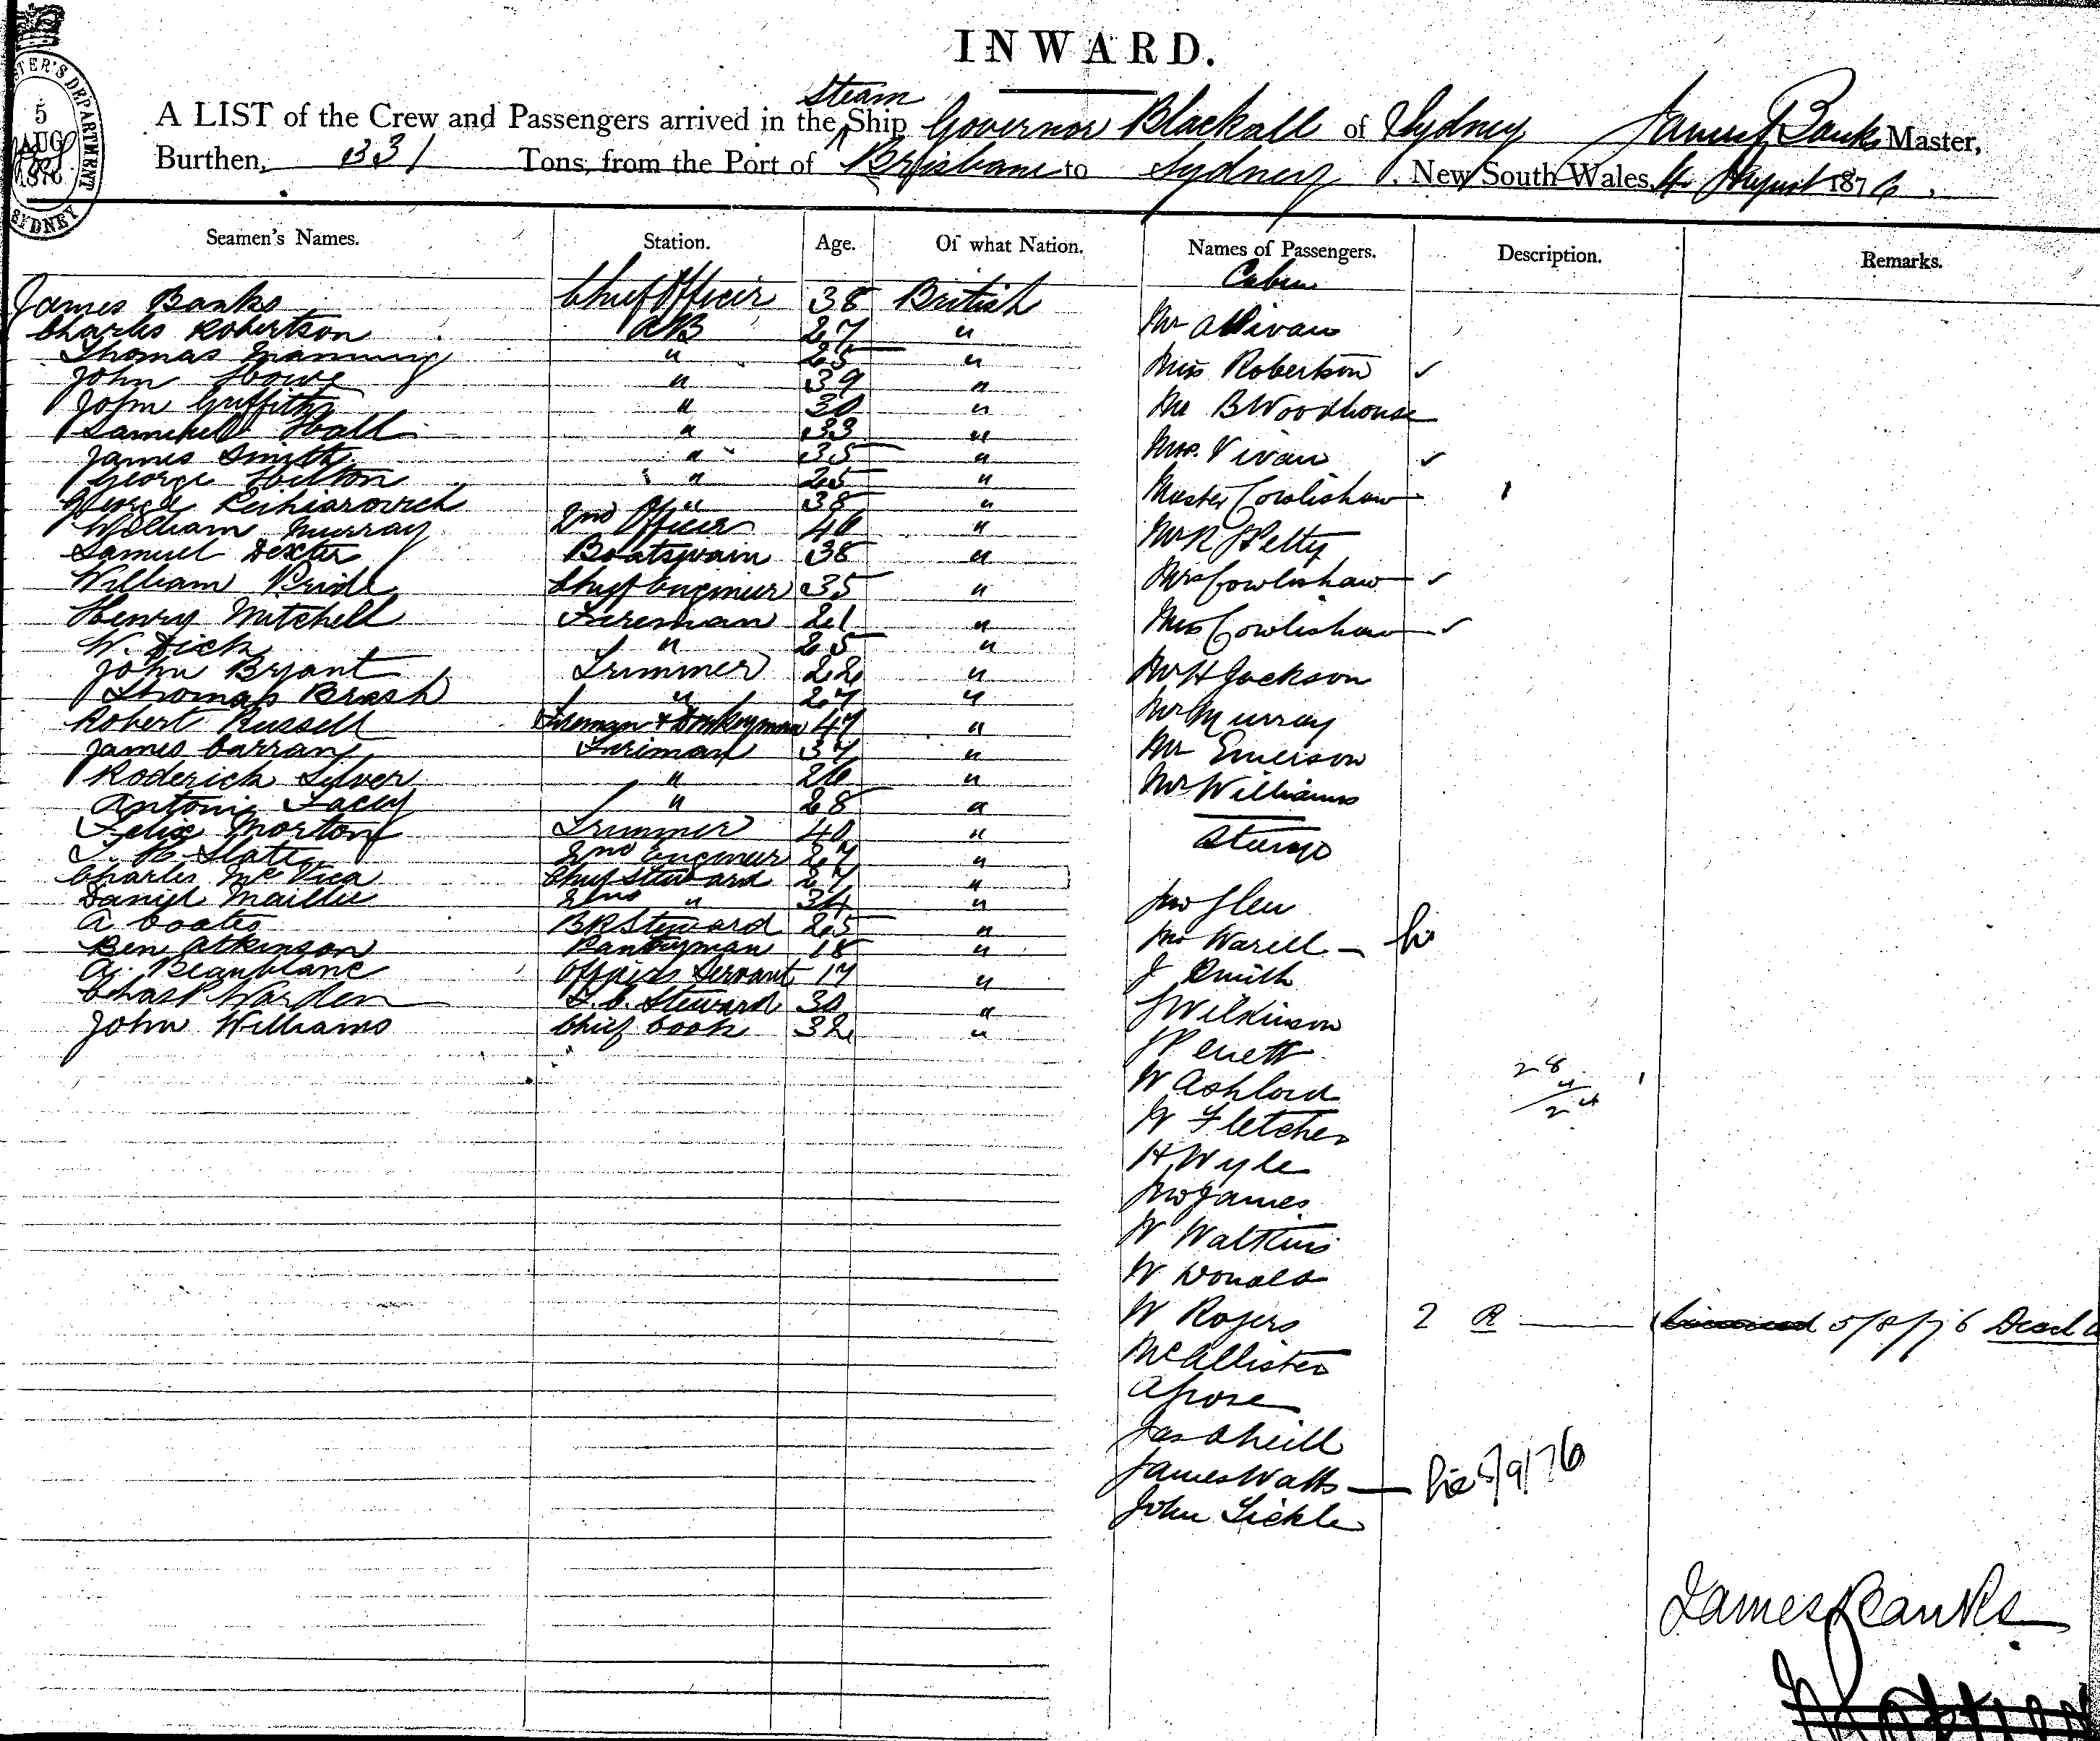 INWARD.
MASTER'S DEPARTMENT
5
AUG
1876
SYDNEY
Steam
A LIST of the Crew and Passengers arrived in the Ship Governor Blackall of Sydney James Banks Master,
Burthen, 331 Tons, from the Port of Brisbane to Sydney, New South Wales, 4 August 1876.
Seamen's Names. Station. Age. Of what Nation. Names of Passengers. Description. Remarks.
James Banks Chief Officer 38 British
Charles Robertson AB 27 "
Thomas Manning " 25 "
John Howe " 39 "
John Griffiths " 30 "
Samuel Hall " 33 "
James Smith " 35 "
George Hilton " 25 "
George " 38 "
William Murray 2nd Officer 40 "
Samuel Dexter Boatswain 38 "
William Pride Chief Engineer 35 "
Henry Mitchell Fireman 21 "
W. Dick " 25 "
John Bryant Trimmer 22 "
Thomas Brash " 27 "
Robert Russell Fireman & Donkeyman 47 "
James Carrany Fireman 37 "
Roderick Silver " 26 "
Antonie Lacey " 28 "
Felix Morton Trimmer 40 "
T. H. Slate 2nd Engineer 27 "
Charles McVica Chief Steward 27 "
Daniel Maillie 2nd " 34 "
A Coates BR Steward 25 "
Ben Atkinson Pantryman 18 "
A. Beaublanc Officers Servant 17 "
Chas P Warden F.C. Steward 30 "
John Williams Chief Cook 32 "
Cabin
Mr A Vivan
Miss Robertson ✓
Mr B Woodhouse
Mrs. Vivan ✓
Master Cowlishaw 1
Mr R J Petty
Mrs Cowlishaw ✓
Miss Cowlishaw ✓
Mr H Jackson
Mr Murray
Mr Emerson
Mr Williams
Steerage
Jno Glen
Jno Warell
J Smith
J Wilkinson
J Perrett
W Ashford
W Fletcher
H Wyle
Jno James
W Watkins
W Donald
W Rogers 2 R 5/8/76 Dead
McAllister
A Grose
Jas O'Neill
James Watts 5/9/76
John Sickle
28
4
24
James Banks